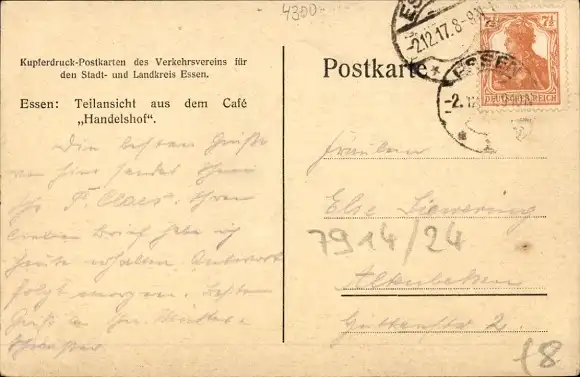 4300
Kupferdruck-Postkarten des Verkehrsvereins für
den Stadt- und Landkreis Essen.
Essen: Teilansicht aus dem Café
„Handelshof“.
Die besten Grüße
von hier sendet Ihnen
Ihr F. Claes. Ihren
lieben Brief habe ich
heute erhalten. Antwort
folgt morgen. Besten
Gruß an
Postkarte
ESSEN
-2.12.17.8-9
7½ 7½
DEUTSCHES REICH
ESSEN
-2.
1
Fräulein
Else
7914/24
Altenbeken
2.
(8